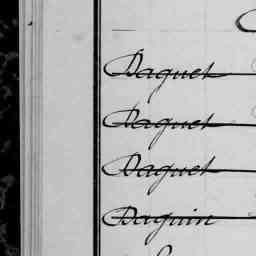 Daguet
Daguet
Daguet
Daguin